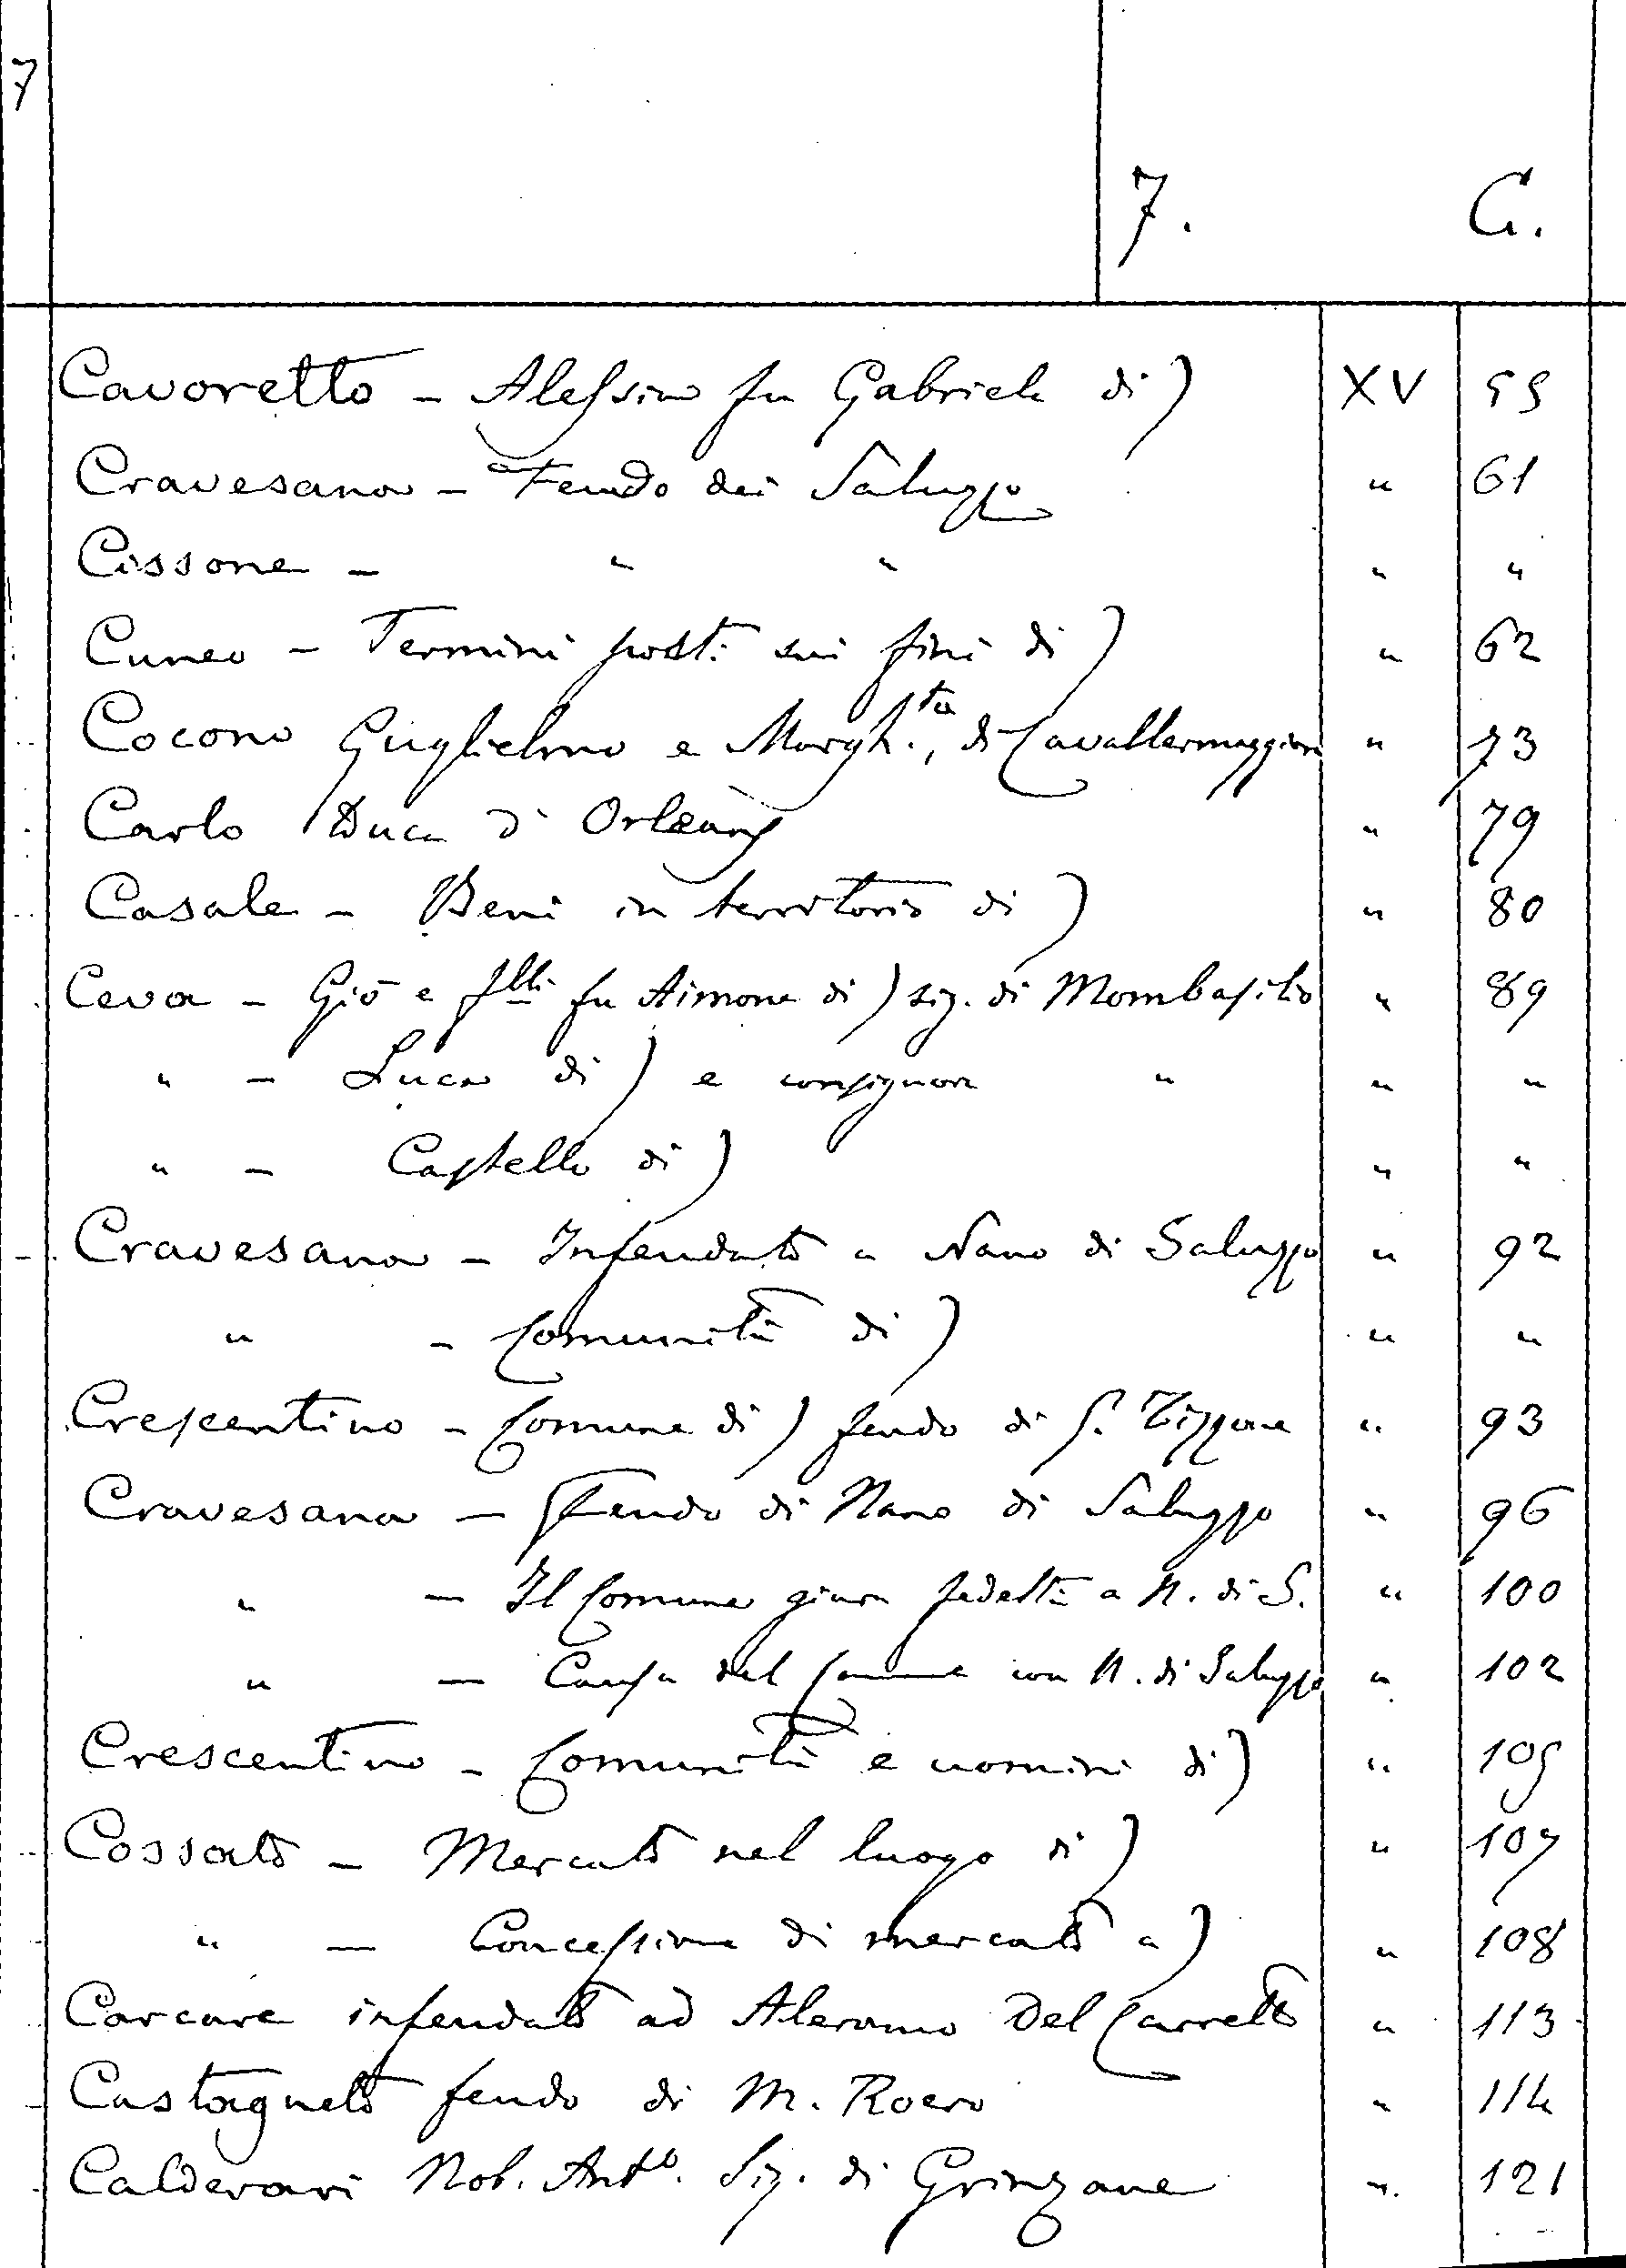 7
7. C.
Cavoretto - Alessino fu Gabriele di) XV 55
Cravesana - Feudo dei Saluzzo " 61
Cissone - " " " "
Cuneo - Termini posti sui fini di) " 62
Cocono Guglielmo e Margh.ta, di Cavallermaggiore " 73
Carlo Duca d'Orleans " 79
Casale - Beni in territorio di) " 80
Ceva - Giō e flli fu Aimone di) sig. di Mombasilio " 89
" - Luca di) e consignori " " "
" - Castello di) " "
Cravesana - Infeudato a Nano di Saluzzo " 92
" - Comunità di) " "
Crescentino - Comune di) feudo di G. Tizzone " 93
Cravesana - Feudo di Nano di Saluzzo " 96
" - Il Comune giura fedeltà a N. di S. " 100
" - Causa del Comune con N. di Saluzzo " 102
Crescentino - Comunità e uomini di) " 105
Cossato - Mercato nel luogo di) " 107
" - Concessione di mercato a) " 108
Carcare infeudato ad Aleramo Del Carretto " 113
Castagneto feudo di M. Roero " 114
Calderari Nob. Anto. Sig. di Grinzane " 121